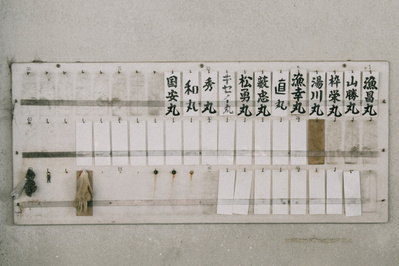 漁昌丸
山勝丸
梓栄丸
湯川丸
漁幸丸
直丸
藪忠丸
松勇丸
キセノ丸
秀丸
和丸
国安丸